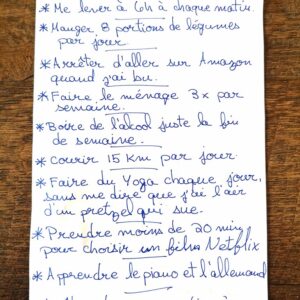 * Me lever à 6h à chaque matin.
* Manger 8 portions de légumes
par jour.
* Arrêter d'aller sur Amazon
quand j'ai bu.
* Faire le ménage 3x par
semaine.
* Boire de l'alcool juste la fin
de semaine.
* Courir 15 km par jour.
* Faire du Yoga chaque jour,
sans me dire que j'ai l'air
d'un pretzel qui sue.
* Prendre moins de 20 min
pour choisir un film Netflix
* Apprendre le piano et l'allemand